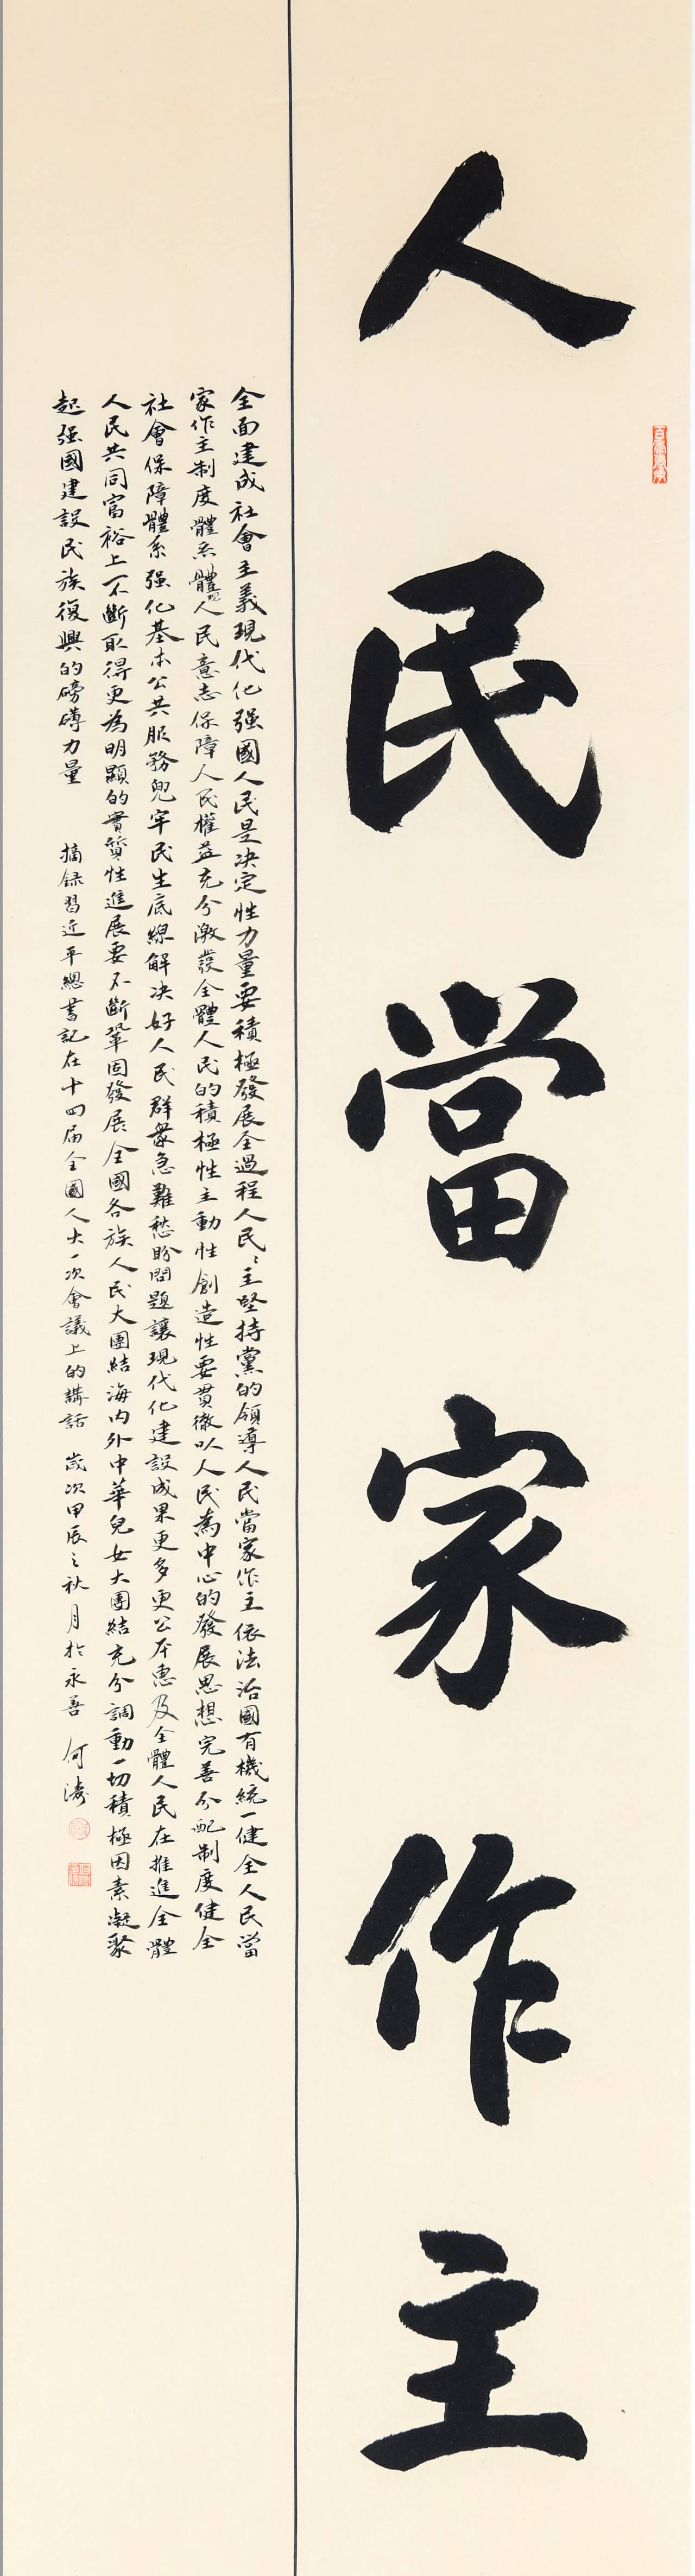 人民當家作主
全面建成社會主義現代化强國人民是决定性力量要積極發展全過程人民〻主堅持黨的領導人民當家作主依法治國有機統一健全人民當
家作主制度體系體現人民意志保障人民權益充分激發全體人民的積極性主動性創造性要貫徹以人民為中心的發展思想完善分配制度健全
社會保障體系强化基本公共服務兜牢民生底線解决好人民群衆急難愁盼問題讓現代化建設成果更多更公平惠及全體人民在推進全體
人民共同富裕上不斷取得更為明顯的實質性進展要不斷鞏固發展全國各族人民大團結海内外中華兒女大團結充分調動一切積極因素凝聚
起强國建設民族復興的磅礴力量 摘録習近平總書記在十四届全國人大一次會議上的講話 歲次甲辰之秋月於永善 何濤